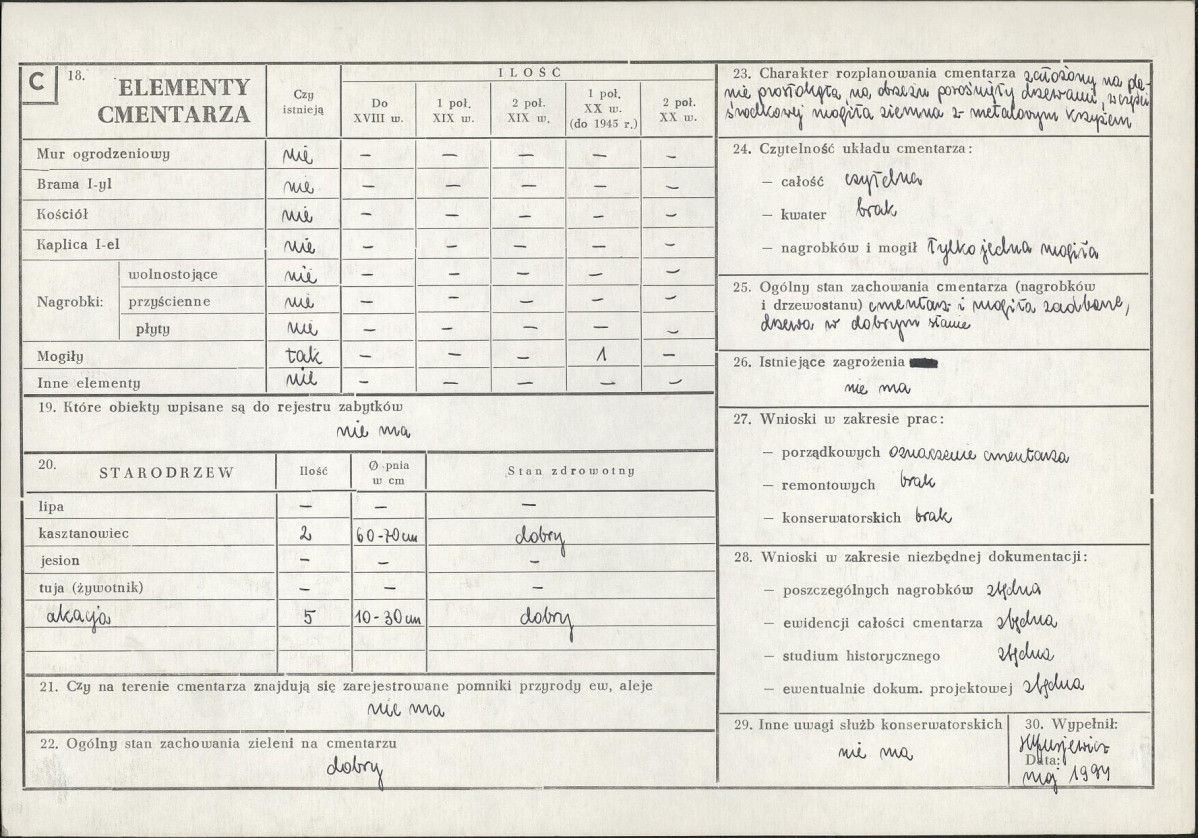 C
18. ELEMENTY CMENTARZA
Czy istnieją
ILOŚĆ
Do XVIII w.
1 poł. XIX w.
2 poł. XIX w.
1 poł. XX w. (do 1945 r.)
2 poł. XX w.
Mur ogrodzeniowy nie – – – – –
Brama I-yl nie – – – – –
Kościół nie – – – – –
Kaplica I-el nie – – – – –
Nagrobki:
wolnostojące nie – – – – –
przyścienne nie – – – – –
płyty nie – – – – –
Mogiły tak – – – 1 –
Inne elementy nie – – – – –
19. Które obiekty wpisane są do rejestru zabytków
nie ma
20. STARODRZEW Ilość Ø pnia w cm Stan zdrowotny
lipa – – –
kasztanowiec 2 60-70cm dobry
jesion – – –
tuja (żywotnik) – – –
akacja 5 10-30cm dobry
21. Czy na terenie cmentarza znajdują się zarejestrowane pomniki przyrody ew, aleje
nie ma
22. Ogólny stan zachowania zieleni na cmentarzu
dobry
23. Charakter rozplanowania cmentarza założony na pla-
nie prostokąta, na obrzeżu porośnięty drzewami, w części
środkowej mogiła ziemna z metalowym krzyżem
24. Czytelność układu cmentarza:
– całość czytelna
– kwater brak
– nagrobków i mogił tylko jedna mogiła
25. Ogólny stan zachowania cmentarza (nagrobków
i drzewostanu) cmentarz i mogiła zadbane,
drzewa w dobrym stanie
26. Istniejące zagrożenia
nie ma
27. Wnioski w zakresie prac:
– porządkowych oznaczenie cmentarza
– remontowych brak
– konserwatorskich brak
28. Wnioski w zakresie niezbędnej dokumentacji:
– poszczególnych nagrobków zbędna
– ewidencji całości cmentarza zbędna
– studium historycznego zbędna
– ewentualnie dokum. projektowej zbędna
29. Inne uwagi służb konserwatorskich
nie ma
30. Wypełnił:
Data:
maj 1991